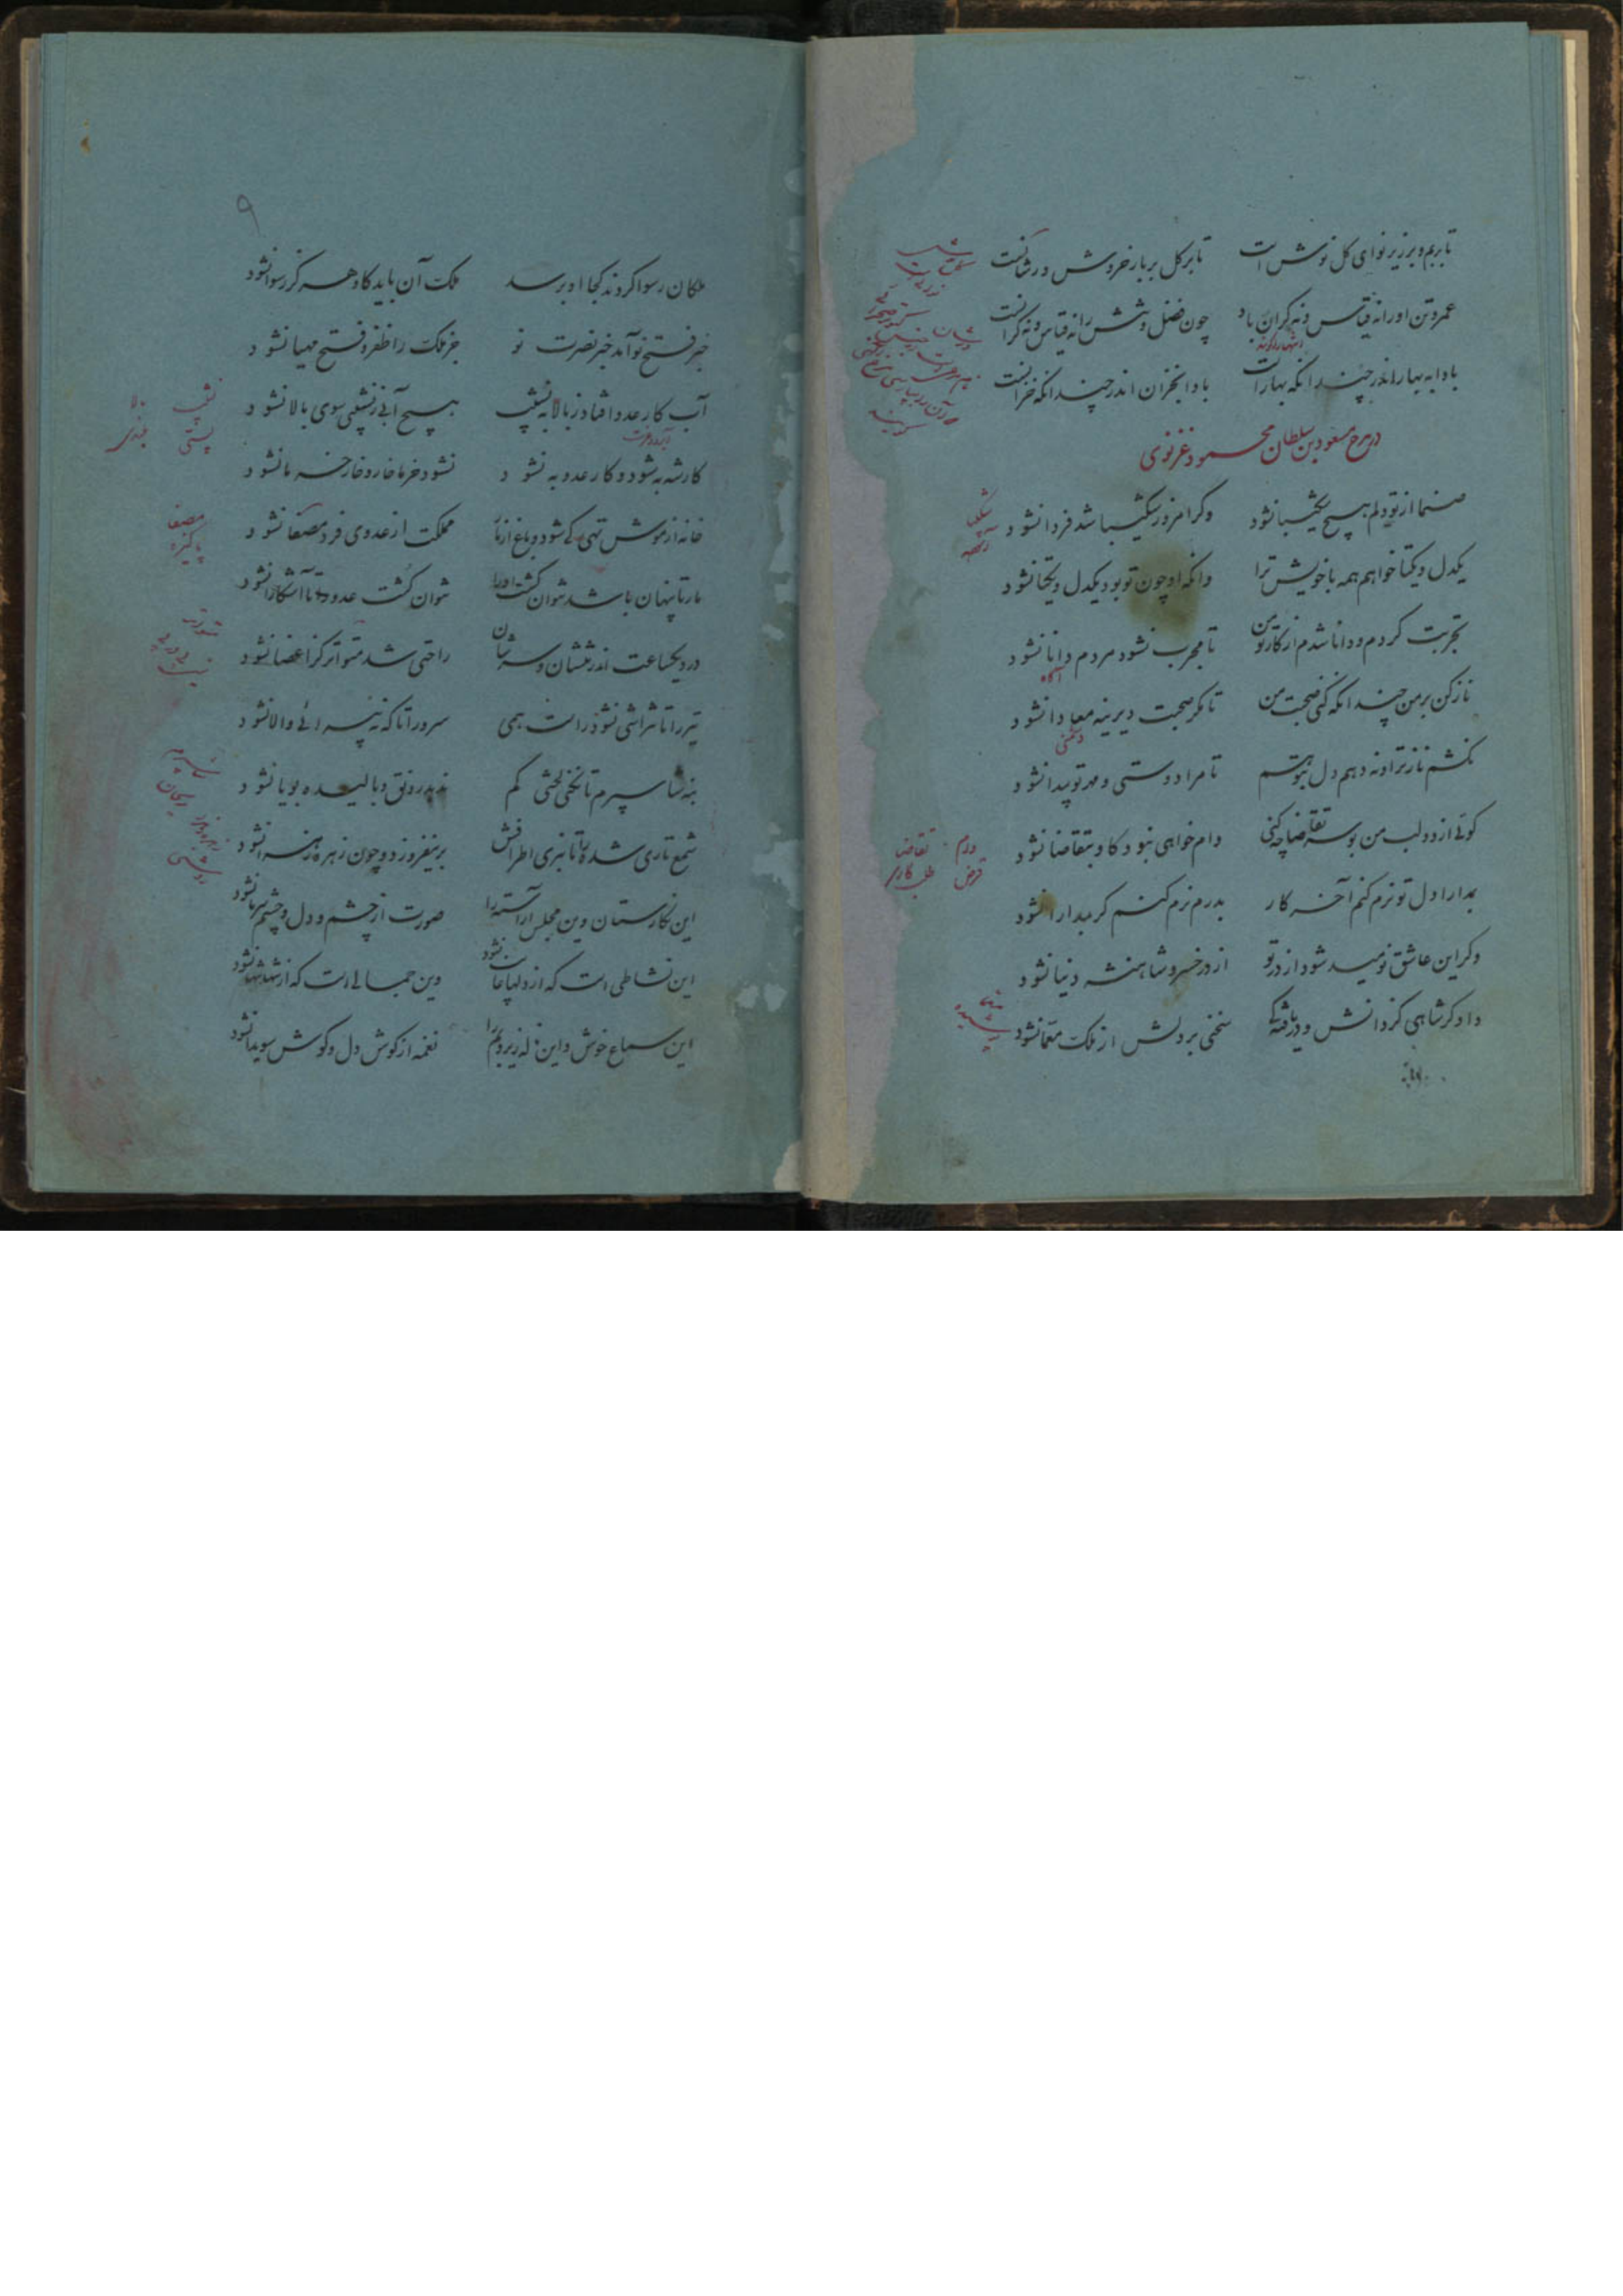 تا بر بم و بر زیر نوای گل نوش است تا بر گل بر بار خروش ورشانست
عمر و تن او را نه قیاس و نه کران باد چون فضل و منش را نه قیاس و نه کرانست
بادا به بهاراندر چندانکه بهارست بادا بخزان اندر چندانکه خزانست
در مدح مسعود بن سلطان محمود غزنوی
صنما از تو دلم هیچ شکیبا نشود وگر امروز شکیبا شد فردا نشود
یکدل و یکتا خواهم همه با خویش ترا وانکه او چون تو بود یکدل و یکتا نشود
تجربت کردم و دانا شدم از کار تو من تا مجرب نشود مردم دانا نشود
آگاه
ناز کن بر من چندانکه کنی صحبت من تا مگر صحبت دیرینه معادا نشود
دشمنی
نکشم ناز ترا و ندهم دل بتو هم تا مرا دوستی و مهر تو پیدا نشود
گوئی از دو لب من بوسه تقاضا چه کنی وام خواهی نبود کاو بتقاضا نشود
وام تقاضا
قرض طلب کاری
بمدارا دل تو نرم کنم آخر کار بدرم نرم کنم گر بمدارا نشود
وگر این عاشق نومید شود از در تو از در خسرو شاهنشه دنیا نشود
دادگر شاهی کز دانش و دریافتگی سخنی بر دلش از ملک معما نشود
۹
ملکان رسوا گردند کجا او برسد ملک آن باید کاو هرگز رسوا نشود
خبر فتح تو آمد خبر نصرت تو جز ملک را ظفر و فتح مهیا نشود
آب کار عدو افتاد ز بالا به نشیب هیچ آبی ز نشیبی سوی بالا نشود
نشیب
پستی
کار شه به شود و کار عدو به نشود نشود خرما خار و خار خرما نشود
خانه از موش تهی کی شود و باغ از مار مملکت از عدوی خرد مصفا نشود
مصفا
پاکیزه
مار تا پنهان باشد نتوان کشت او را نتوان کشت عدو را تا آشکارا نشود
در دیک ساعت اندر تنشان و سرشان راحتی شد متواتر کز اعضا نشود
تیر را تا نتراشی نشود راست همی سرو را تا که نپیرائی والا نشود
بنه شاسپرم تا نکنی لختی کم ندهد رونق و بالیده و بویا نشود
شاسپرم
ریحان
شمع تاری شده را تا نبری اطرافش برنیفروزد و چون زهره زهرا نشود
روشنی
این نگارستان وین مجلس آراسته را صورت از چشم و دل و چشم سر ما نشود
این نشاطی است که از دلها غایب نشود وین جمالی است که از تنها تنها نشود
این سماع خوش و این ناله زیر و بم را نغمه از گوش دل و گوش سویدا نشود